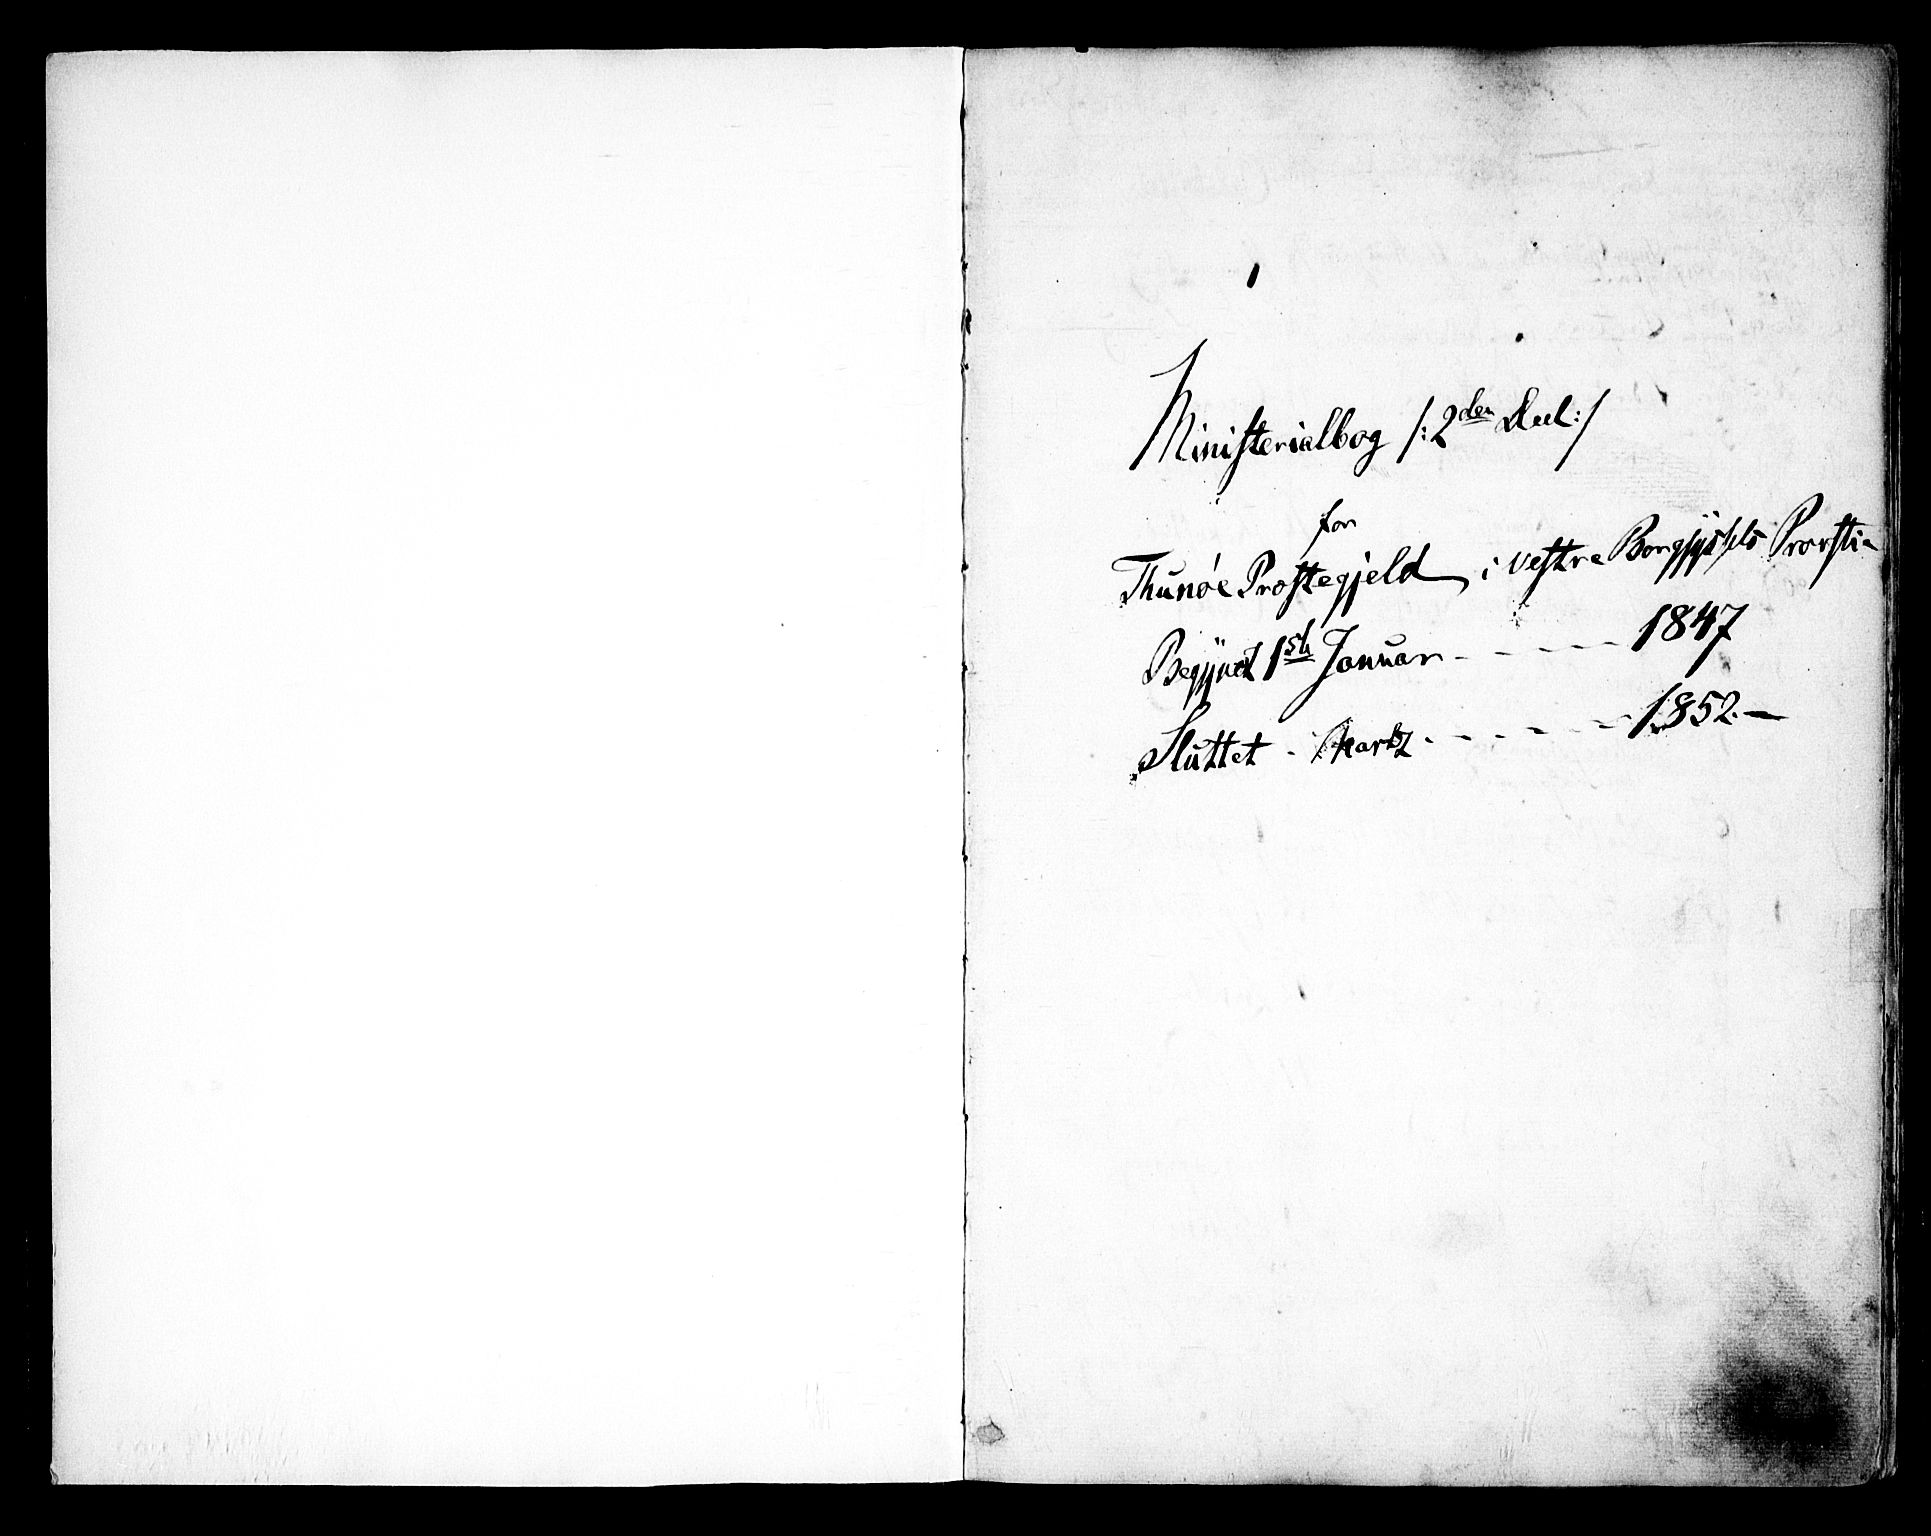 Ministerialbog /: 2den Deel :/
for
Thunöe Præstegjeld, i vestre Borgesyssels Provsti
Begÿndt 1ste Januar - - - - - 1847
Sluttet - Martz - - - - - - 1852. —